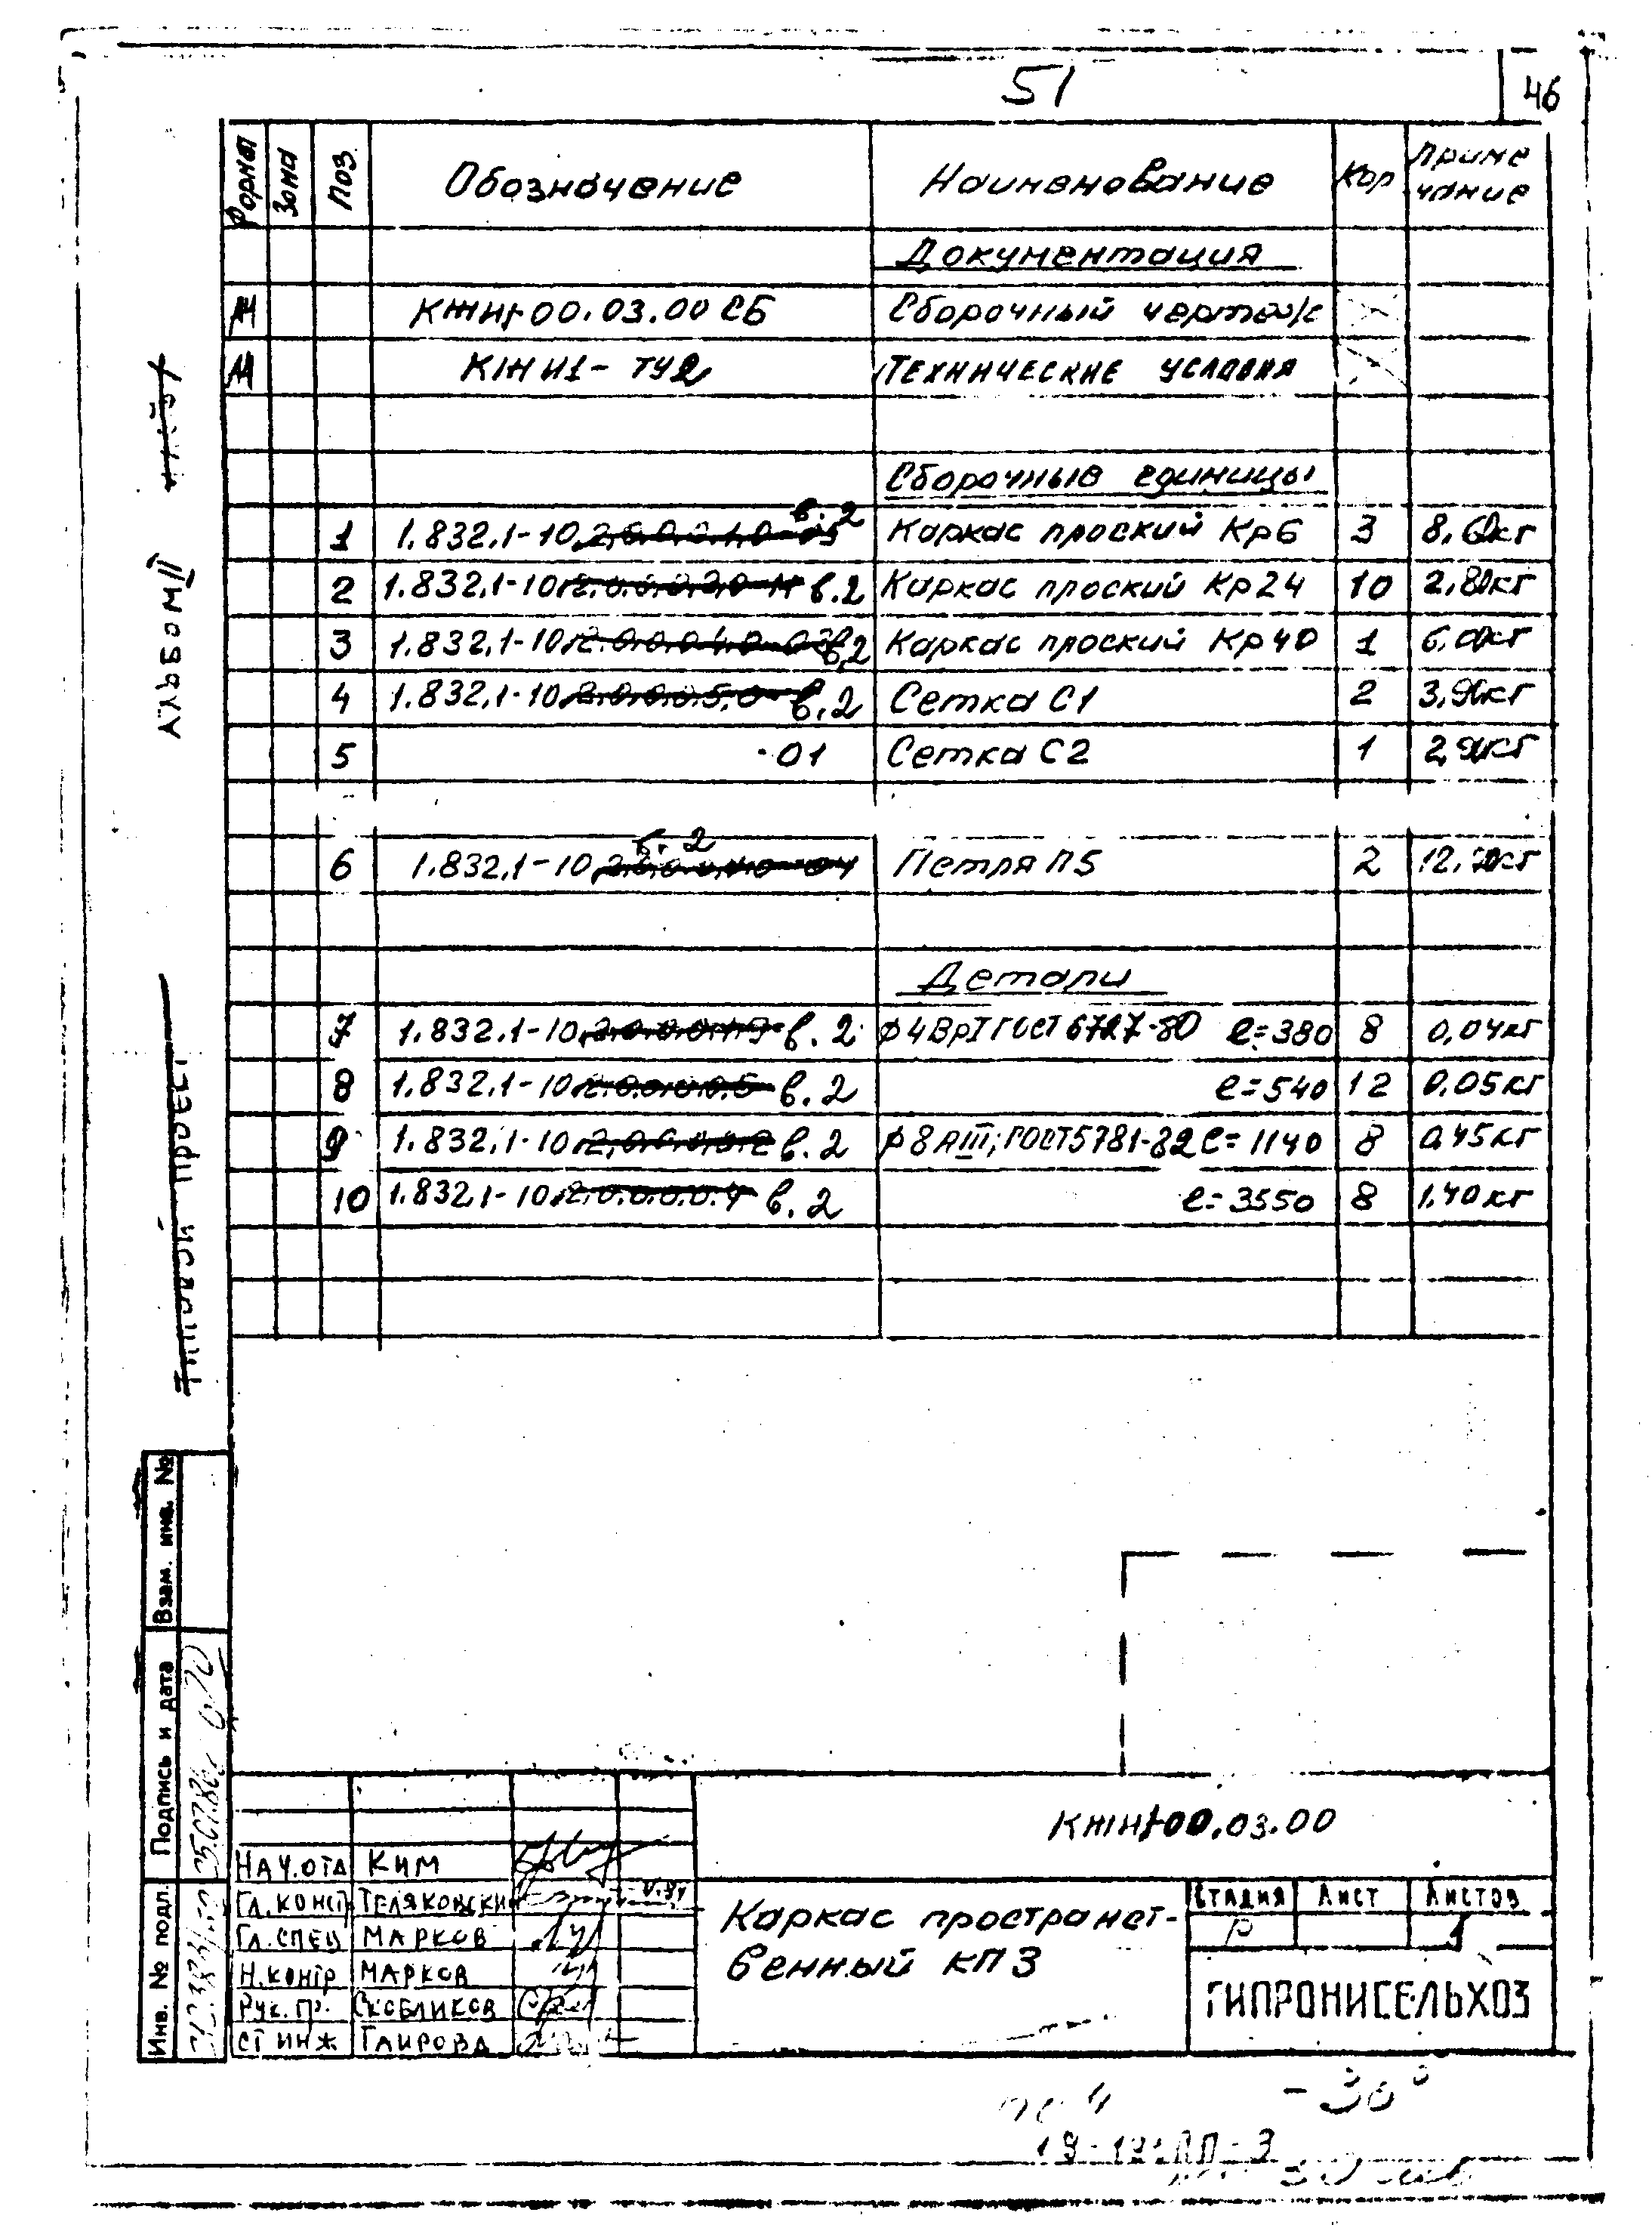 51
46
Формат Зона Поз. Обозначение Наименование Кол Приме-
чание
Документация
А4 КЖИ1-00.03.00 СБ Сборочный чертеж
А4 КЖИ1-ТУ2 Технические условия
Сборочные единицы
1 1.832.1-10 в.2 Каркас плоский Кр6 3
2 1.832.1-10 в.2 Каркас плоский Кр24 10
3 1.832.1-10 в.2 Каркас плоский Кр40 1
4 1.832.1-10 в.2 Сетка С1 2
5 -01 Сетка С2 1
6 1.832.1-10 в.2 Петля П5 2
Детали
7 1.832.1-10 в.2 ⌀4ВрI ГОСТ 6727-80 ℓ=380 8 0,04кг
8 1.832.1-10 в.2 ℓ=540 12 0.05кг
9 1.832.1-10 в.2 ⌀8АIII; ГОСТ5781-82 ℓ=1140 8 0,45кг
10 1.832.1-10 в.2 ℓ=3550 8 1,40кг
Альбом II
Типовой проект
Взам. инв. №
Подпись и дата
Инв. № подл.
КЖИ1-00.03.00
Нач.отд Ким
Гл.констр Теляковский
Гл.спец Марков
Н.контр Марков
Рук.гр. Скобликов
Ст инж Гаирова
Каркас пространст-
венный КП3
Стадия Лист Листов
Р 1
ГИПРОНИСЕЛЬХОЗ